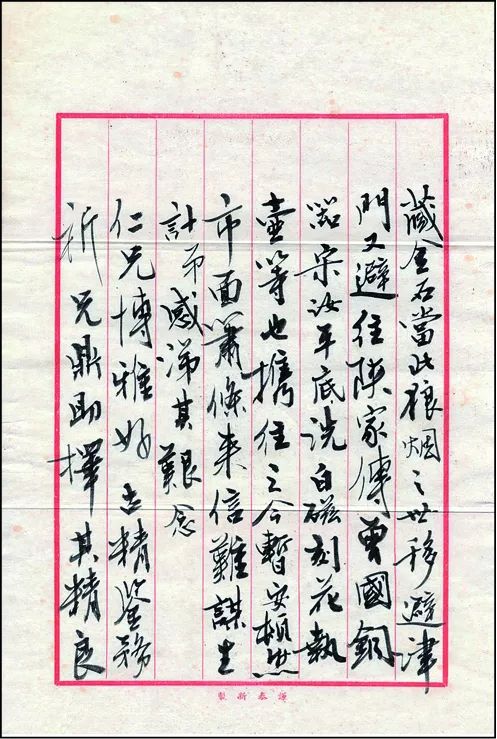 藏金石當此狼烟之世移避津
門又避往陳家傳曾國銅
器宋汝平底洗白磁刻花執
壺等也携往之今暫安頓然
市面蕭條来信難謀生
計弟感涕其艱念
仁兄博雅好古精鉴務
祈兄鼎助擇其精良
泰新製